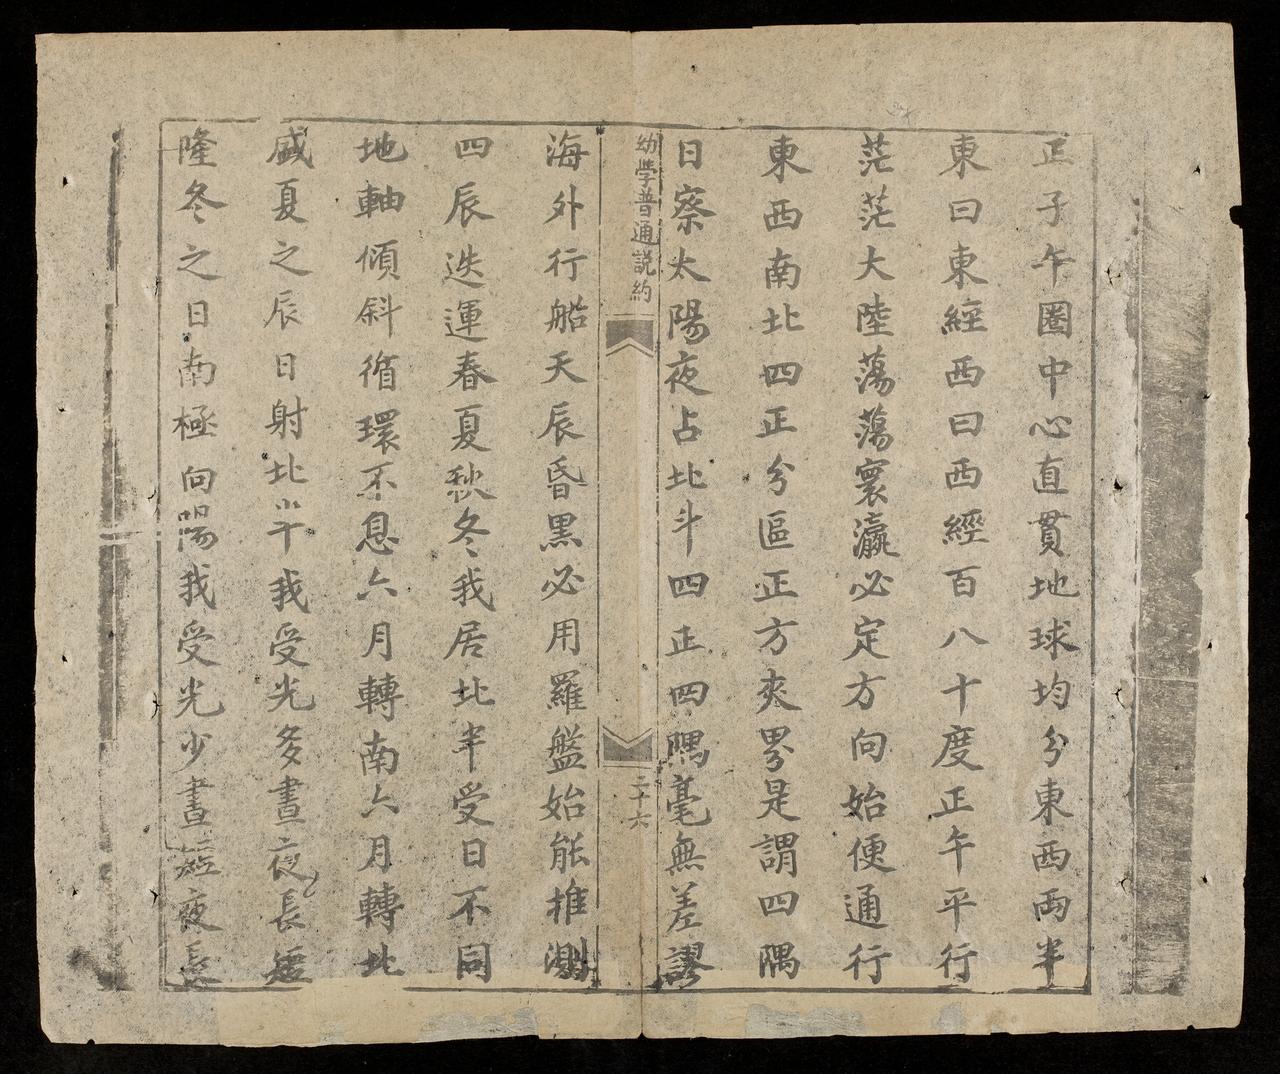 正子午圈中心直貫地球均分東西両半
東曰東經西曰西經百八十度正午平行
茫茫大陸蕩蕩寰瀛必定方向始便通行
東西南北四正分區正方夾界是謂四隅
日察太陽夜占北斗四正四隅毫無差謬
幼學普通説約
二十六
海外行船天辰昏黑必用羅盤始能推測
四辰迭運春夏秋冬我居北半受日不同
地軸傾斜循環不息六月轉南六月轉北
盛夏之辰日射北半我受光多晝夜長短
隆冬之日南極向陽我受光少晝短夜長